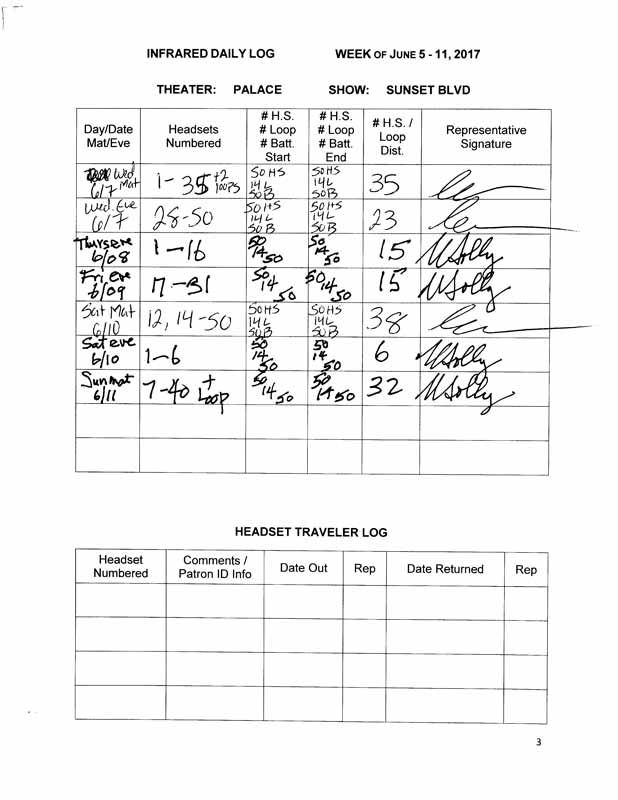 INFRARED DAILY LOG WEEK OF JUNE 5 - 11, 2017
THEATER: PALACE SHOW: SUNSET BLVD
Day/Date Mat/Eve Headsets Numbered # H.S. # Loop # Batt. Start # H.S. # Loop # Batt. End # H.S. / Loop Dist. Representative Signature
Wed Mat 6/7 1-35 +2 loops 50HS 14L 50B 50HS 14L 50B 35
Wed. Eve 6/7 28-50 50HS 14L 50B 50HS 14L 50B 23
Thurs eve 6/08 1-16 50 14 50 50 14 50 15
Fri eve 6/09 17-31 50 14 50 50 14 50 15
Sat Mat 6/10 12, 14-50 50HS 14L 50B 50HS 14L 50B 38
Sat eve 6/10 1-6 50 14 50 50 14 50 6
Sun mat 6/11 7-40 + Loop 50 14 50 50 14 50 32
HEADSET TRAVELER LOG
Headset Numbered Comments / Patron ID Info Date Out Rep Date Returned Rep
3